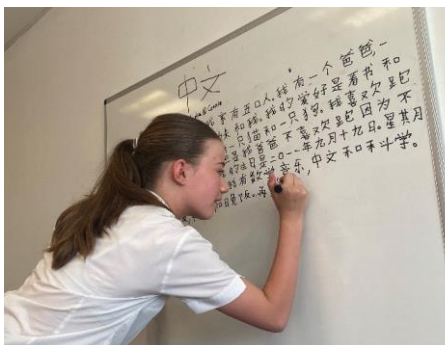 中文
家有五口人。我有一个爸爸,一
和我。我的爱好是看书和
一只猫和一只狗。我喜欢跑
是我爸爸不喜欢跑因为不
的生日是二〇一一年九月十九日。星期
我有数学音乐,中文和科学。
和晚饭。